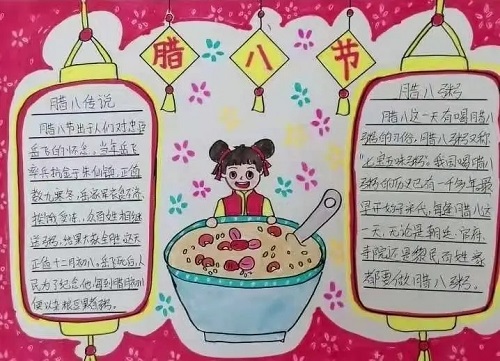 腊八节
腊八传说
腊八节出于人们对忠臣
岳飞的怀念，当年岳飞
率兵抗金于朱仙镇，正值
数九寒冬，岳家军衣食不济
挨饿受冻，众百姓相继
送粥，结果大胜全胜，这天
正值十二月初八，岳飞死后，人
民为了纪念他，每到腊月初八
便以杂粮豆果煮粥。
腊八粥
腊八这一天有喝腊八
粥的习俗，腊八粥又称
“七宝五味粥”。我国喝腊八
粥的历史已有一千多年，最
早开始于宋代，每逢腊八这
一天，无论是朝廷、官府、
寺院还是黎民百姓家
都要做腊八粥。